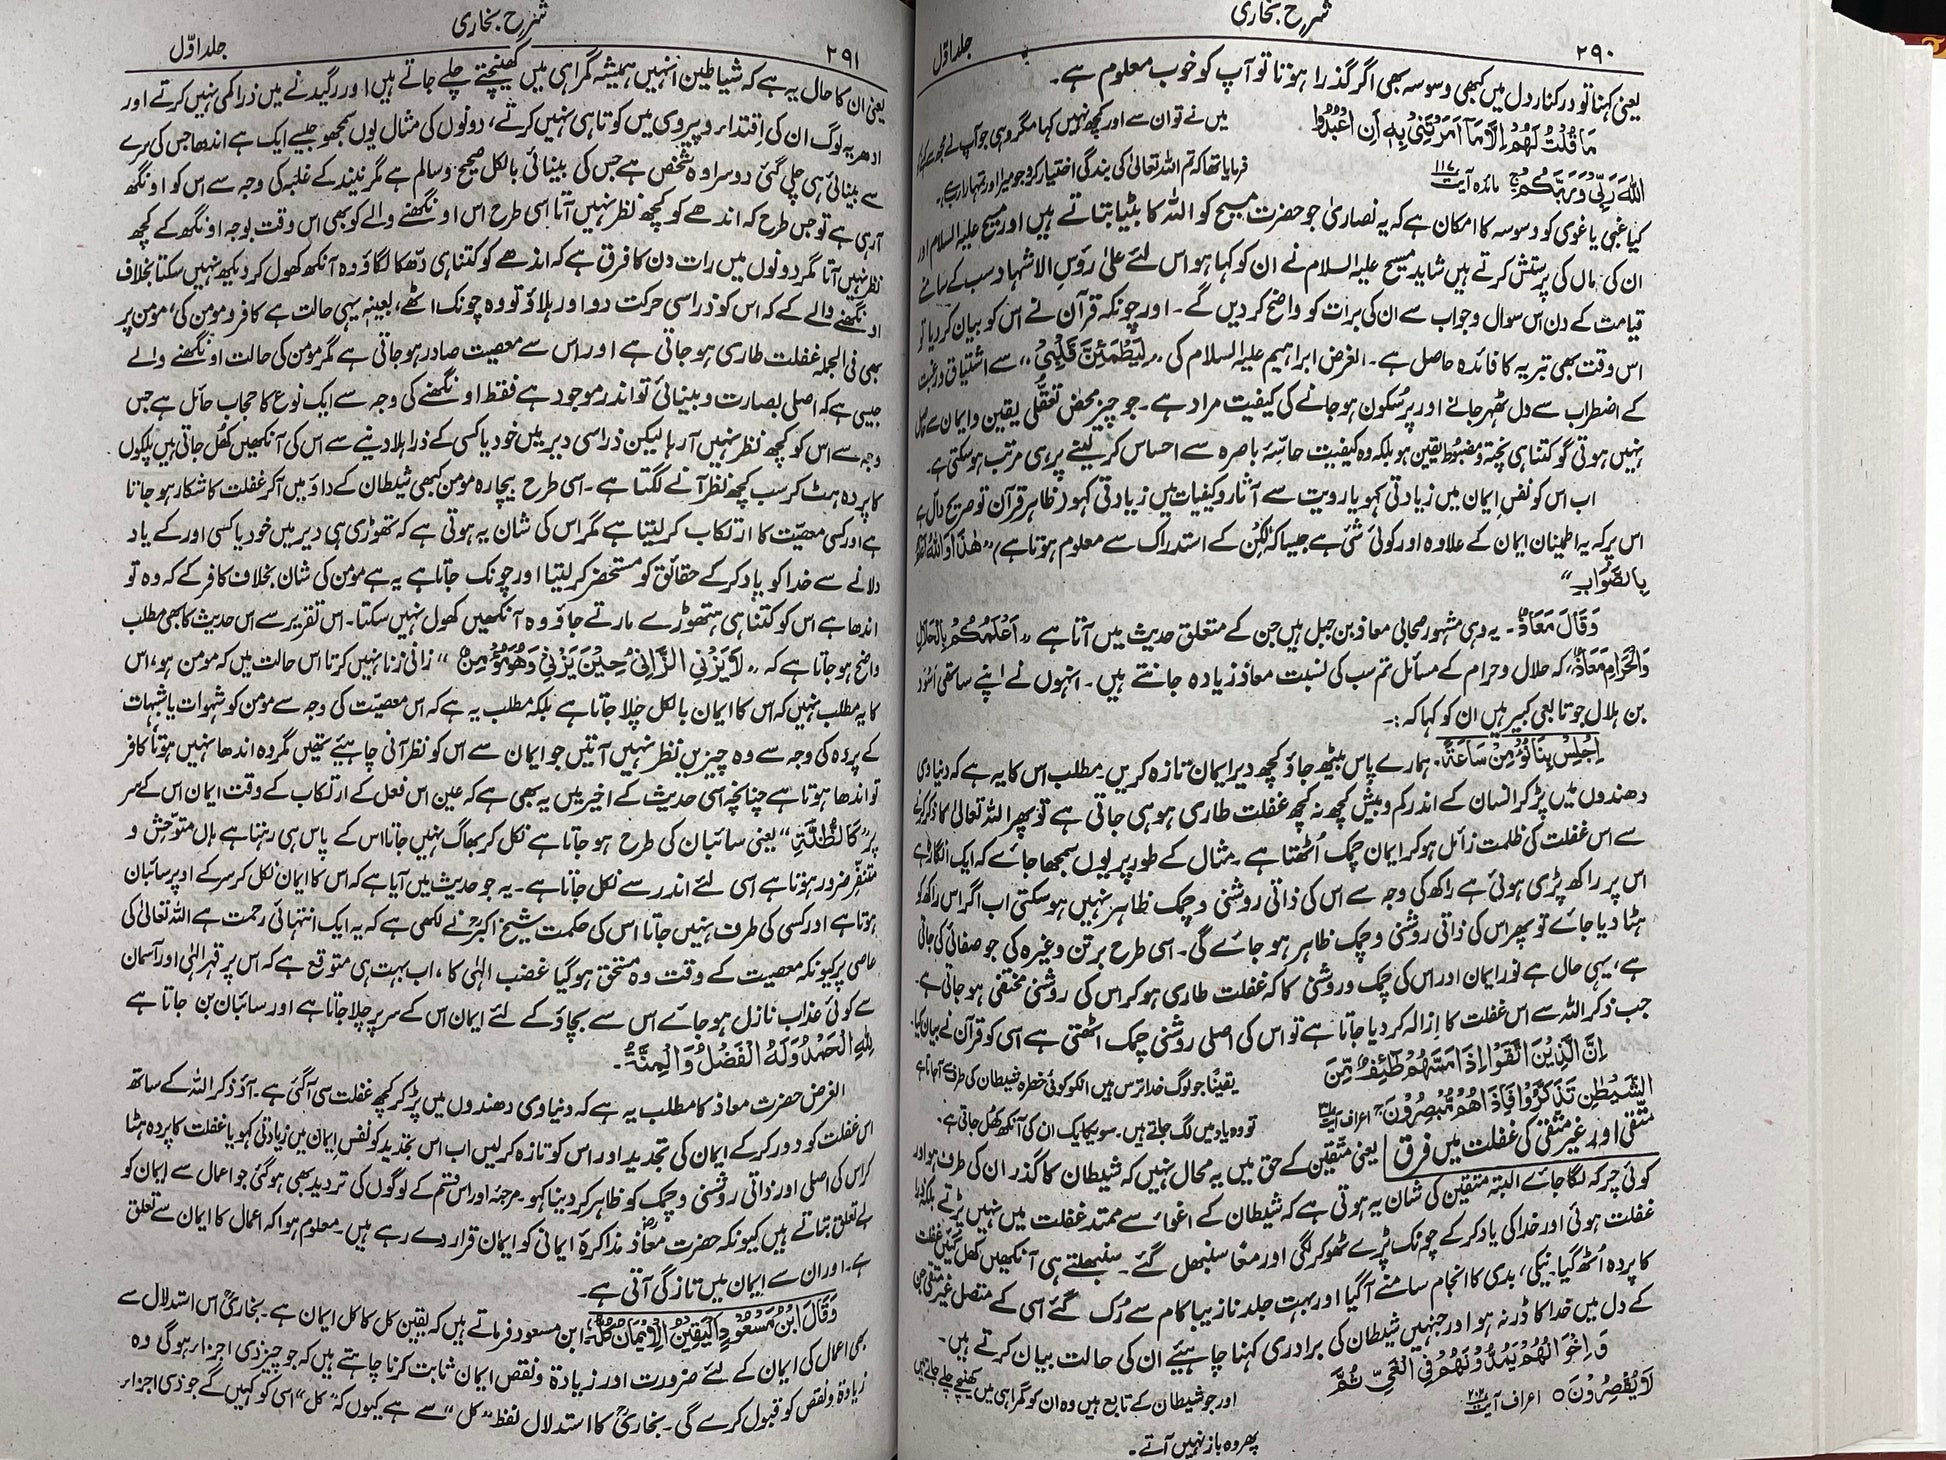 ۲۹۰
شرح بخاری
جلد اوّل
یعنی کہنا تو درکنار دل میں کبھی وسوسہ بھی اگر گذرا ہوتا تو آپ کو خوب معلوم ہے۔
مَا قُلْتُ لَهُمْ اِلَّا مَآ اَمَرْتَنِیْ بِهٖٓ اَنِ اعْبُدُوا
اللّٰهَ رَبِّیْ وَرَبَّكُمْ ج مائدہ آیت ۱۱۷
میں نے تو ان سے اور کچھ نہیں کہا مگر وہی جو آپ نے مجھ سے کہنے کو
فرمایا تھا کہ تم اللہ تعالیٰ کی بندگی اختیار کرو جو میرا اور تمہارا رب ہے۔
کیا غبی یا غوی کو وسوسہ کا امکان ہے کہ یہ نصاریٰ جو حضرت مسیح کو اللہ کا بیٹا بتاتے ہیں اور مسیح علیہ السلام اور
ان کی ماں کی پرستش کرتے ہیں شاید مسیح علیہ السلام نے ان کو کہا ہو اس لئے علیٰ رؤسِ الاشہاد سب کے سامنے
قیامت کے دن اس سوال وجواب سے ان کی برات کو واضح کر دیں گے۔ اور چونکہ قرآن نے اس کو بیان کر دیا تو
اس وقت بھی تبریہ کا فائدہ حاصل ہے۔ الغرض ابراہیم علیہ السلام کی ”لِیَطْمَئِنَّ قَلْبِیْ“ سے اشتیاق ورغبت
کے اضطراب سے دل ٹھہر جانے اور پرسُکون ہو جانے کی کیفیت مراد ہے۔ جو چیز محض تعقُّلی یقین وایمان سے حاصل
نہیں ہوتی گو کتنا ہی پختہ ومضبوط یقین ہو بلکہ وہ کیفیت حاسّۂ باصرہ سے احساس کر لینے پر ہی مرتب ہو سکتی ہے۔
اب اس کو نفسِ ایمان میں زیادتی کہو یا رویت سے آثار وکیفیات میں زیادتی کہو (ظاہر قرآن تو صریح دال ہے
اس پر کہ یہ اطمینان ایمان کے علاوہ اور کوئی شئی ہے جیسا کہ لٰکِنْ کے استدراک سے معلوم ہوتا ہے) ”ھٰذا وَاللّٰہُ اَعْلَمُ
بِالصَّوَابِ“
وَقَالَ مَعَاذٌ۔ یہ وہی مشہور صحابی معاذ بن جبل ہیں جن کے متعلق حدیث میں آتا ہے ”اَعْلَمُكُمْ بِالْحَلَالِ
وَالْحَرَامِ مَعَاذٌ“ کہ حلال وحرام کے مسائل تم سب کی نسبت معاذ زیادہ جانتے ہیں۔ انہوں نے اپنے ساتھی اسود
بن ہلال جو تابعی کبیر ہیں ان کو کہا کہ:۔
اِجْلِسْ بِنَا نُؤْمِنْ سَاعَةً۔ ہمارے پاس بیٹھ جاؤ کچھ دیر ایمان تازہ کریں۔ مطلب اس کا یہ ہے کہ دنیاوی
دھندوں میں پڑ کر انسان کے اندر کم وبیش کچھ نہ کچھ غفلت طاری ہو ہی جاتی ہے تو پھر اللہ تعالیٰ کا ذکر کرنے
سے اس غفلت کی ظلمت زائل ہو کر ایمان چمک اُٹھتا ہے۔ مثال کے طور پر یوں سمجھا جائے کہ ایک انگارہ ہے
اس پر راکھ پڑی ہوئی ہے راکھ کی وجہ سے اس کی ذاتی روشنی وچمک ظاہر نہیں ہو سکتی اب اگر اس راکھ کو
ہٹا دیا جائے تو پھر اس کی ذاتی روشنی وچمک ظاہر ہو جائے گی۔ اسی طرح برتن وغیرہ کی جو صفائی کی جاتی
ہے، یہی حال ہے نور ایمان اور اس کی چمک وروشنی کا کہ غفلت طاری ہو کر اس کی روشنی مختفی ہو جاتی ہے۔
جب ذکر اللہ سے اس غفلت کا اِزالہ کر دیا جاتا ہے تو اس کی اصلی روشنی چمک اٹھتی ہے اسی کو قرآن نے بیان کیا۔
اِنَّ الَّذِیْنَ اتَّقَوْا اِذَا مَسَّهُمْ طٰٓئِفٌ مِّنَ
الشَّیْطٰنِ تَذَكَّرُوْا فَاِذَا هُمْ مُّبْصِرُوْنَ ج اعراف آیت
یقینًا جو لوگ خدا ترس ہیں انکو کوئی خطرہ شیطان کی طرف سے آجاتا ہے
تو وہ یاد میں لگ جاتے ہیں۔ سو یکایک ان کی آنکھ کھل جاتی ہے۔
متقی اور غیر متقی کی غفلت میں فرق یعنی متقین کے حق میں یہ محال نہیں کہ شیطان کا گذر ان کی طرف ہو اور
کوئی چرکہ لگا جائے البتہ متقین کی شان یہ ہوتی ہے کہ شیطان کے اغوا سے ممتد غفلت میں نہیں پڑتے بلکہ ذرا
غفلت ہوئی اور خدا کی یاد کر کے چونک پڑے ٹھوکر لگی اور معًا سنبھل گئے۔ سنبھلتے ہی آنکھیں کھل گئیں غفلت
کا پردہ اُٹھ گیا۔ نیکی، بدی کا انجام سامنے آگیا اور بہت جلد نازیبا کام سے رُک گئے اسی کے متصل غیر متقی جن
کے دل میں خدا کا ڈر نہ ہو اور جنہیں شیطان کی برادری کہنا چاہیئے ان کی حالت بیان کرتے ہیں۔
وَاِخْوَانُهُمْ یَمُدُّوْنَهُمْ فِی الْغَیِّ ثُمَّ
لَا یُقْصِرُوْنَ ○ اعراف آیت ۲۰۲
اور جو شیطان کے تابع ہیں وہ ان کو گمراہی میں کھینچے چلے جاتے ہیں
پھر وہ باز نہیں آتے۔
۲۹۱
شرح بخاری
جلد اوّل
یعنی ان کا حال یہ ہے کہ شیاطین انہیں ہمیشہ گمراہی میں کھینچتے چلے جاتے ہیں اور رگیدنے میں ذرا کمی نہیں کرتے اور
ادھر یہ لوگ ان کی اِقتداء وپیروی میں کوتاہی نہیں کرتے، دونوں کی مثال یوں سمجھو جیسے ایک ہے اندھا جس کی سرے
سے بینائی ہی چلی گئی دوسرا وہ شخص ہے جس کی بینائی بالکل صحیح وسالم ہے مگر نیند کے غلبہ کی وجہ سے اس کو اونگھ
آ رہی ہے تو جس طرح کہ اندھے کو کچھ نظر نہیں آتا اسی طرح اس اونگھنے والے کو بھی اس وقت بوجہ اونگھ کے کچھ
نظر نہیں آتا مگر دونوں میں رات دن کا فرق ہے کہ اندھے کو کتنا ہی دھکا لگاؤ وہ آنکھ کھول کر دیکھ نہیں سکتا بخلاف
اونگھنے والے کے کہ اس کو ذرا سی حرکت دو اور ہلاؤ تو وہ چونک اٹھے، بعینہٖ یہی حالت ہے کافر ومومن کی، مومن پر
بھی فی الجملہ غفلت طاری ہو جاتی ہے اور اس سے معصیت صادر ہو جاتی ہے مگر مومن کی حالت اونگھنے والے
جیسی ہے کہ اصلی بصارت وبینائی تو اندر موجود ہے فقط اونگھنے کی وجہ سے ایک نوع کا حجاب حائل ہے جس
وجہ سے اس کو کچھ نظر نہیں آ رہا لیکن ذرا سی دیر میں خود یا کسی کے ذرا ہلا دینے سے اس کی آنکھیں کھُل جاتی ہیں پلکوں
کا پردہ ہٹ کر سب کچھ نظر آنے لگتا ہے۔ اسی طرح بیچارہ مومن کبھی شیطان کے داؤ میں آکر غفلت کا شکار ہو جاتا
ہے اور کسی معصیّت کا ارتکاب کر لیتا ہے مگر اس کی شان یہ ہوتی ہے کہ تھوڑی ہی دیر میں خود یا کسی اور کے یاد
دلانے سے خدا کو یاد کر کے حقائق کو مستحضر کر لیتا اور چونک جاتا ہے یہ ہے مومن کی شان بخلاف کافر کے کہ وہ تو
اندھا ہے اس کو کتنا ہی ہتھوڑے مارتے جاؤ وہ آنکھیں کھول نہیں سکتا۔ اس تقریر سے اس حدیث کا بھی مطلب
واضح ہو جاتا ہے کہ ”لَا یَزْنِی الزَّانِیْ حِیْنَ یَزْنِیْ وَهُوَ مُؤْمِنٌ“ زانی زنا نہیں کرتا اس حالت میں کہ مومن ہو، اس
کا یہ مطلب نہیں کہ اس کا ایمان بالکل چلا جاتا ہے بلکہ مطلب یہ ہے کہ اس معصیّت کی وجہ سے مومن کو شہوات یا شبہات
کے پردہ کی وجہ سے وہ چیزیں نظر نہیں آتیں جو ایمان سے اس کو نظر آنی چاہیئے تھیں مگر وہ اندھا نہیں ہوتا کافر
تو اندھا ہوتا ہے چنانچہ اسی حدیث کے اخیر میں یہ بھی ہے کہ عین اس فعل کے ارتکاب کے وقت ایمان اس کے سر
پر ”كَالظُّلَّةِ“ یعنی سائبان کی طرح ہو جاتا ہے نکل کر بھاگ نہیں جاتا اس کے پاس ہی رہتا ہے ہاں متوحّش و
متنفّر ضرور ہوتا ہے اسی لئے اندر سے نکل جاتا ہے۔ یہ جو حدیث میں آیا ہے کہ اس کا ایمان نکل کر سر کے اوپر سائبان
ہوتا ہے اور کسی کی طرف نہیں جاتا اس کی حکمت شیخ اکبرؒ نے لکھی ہے کہ یہ ایک انتہائی رحمت ہے اللہ تعالیٰ کی
عاصی پر کیونکہ معصیت کے وقت وہ مستحق ہو گیا غضب الٰہی کا، اب بہت ہی متوقع ہے کہ اس پر قہر الٰہی اور آسمان
سے کوئی عذاب نازل ہو جائے اس سے بچاؤ کے لئے ایمان اس کے سر پر چلا جاتا ہے اور سائبان بن جاتا ہے
لِلّٰهِ الْحَمْدُ وَلَهُ الْفَضْلُ وَالْمِنَّةُ۔
الغرض حضرت معاذ کا مطلب یہ ہے کہ دنیاوی دھندوں میں پڑ کر کچھ غفلت سی آ گئی ہے۔ آؤ ذکر اللہ کے ساتھ
اس غفلت کو دور کر کے ایمان کی تجدید اور اس کو تازہ کر لیں اب اس تجدید کو نفسِ ایمان میں زیادتی کہو یا غفلت کا پردہ ہٹا
کر اس کی اصلی اور ذاتی روشنی وچمک کو ظاہر کر دینا کہو۔ مرجئہ اور اس قسم کے لوگوں کی تردید بھی ہو گئی جو اعمال سے ایمان کو
بے تعلق بتاتے ہیں کیونکہ حضرت معاذؓ مذاکرۂ ایمانی کو ایمان قرار دے رہے ہیں۔ معلوم ہوا کہ اعمال کا ایمان سے تعلق
ہے۔ اور ان سے ایمان میں تازگی آتی ہے۔
وَقَالَ ابْنُ مَسْعُوْدٍ اَلْیَقِیْنُ الْاِیْمَانُ كُلُّهٗ، ابن مسعود فرماتے ہیں کہ یقین کل کا کل ایمان ہے۔ بخاریؒ اس استدلال سے
بھی اعمال کی ایمان کے لئے ضرورت اور زیادۃ ونقص ایمان ثابت کرنا چاہتے ہیں کہ جو چیز ذی اجزاء ہو گی وہ
زیادۃ ونقص کو قبول کرے گی۔ بخاریؒ کا استدلال لفظ ”کل“ سے ہے کیوں کہ ”کل“ اسی کو کہیں گے جو ذی اجزاء